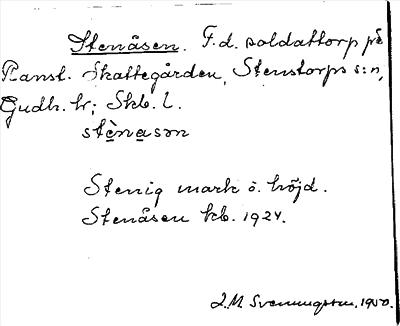 Stenåsen. F.d. soldattorp på
Ranst. Skattegården, Stenstorps s:n,
Gudh. hr; Skb. l.
stènasən
Stenig mark o. höjd.
Stenåsen kb. 1924.
L.M. Svenungsson. 1950.